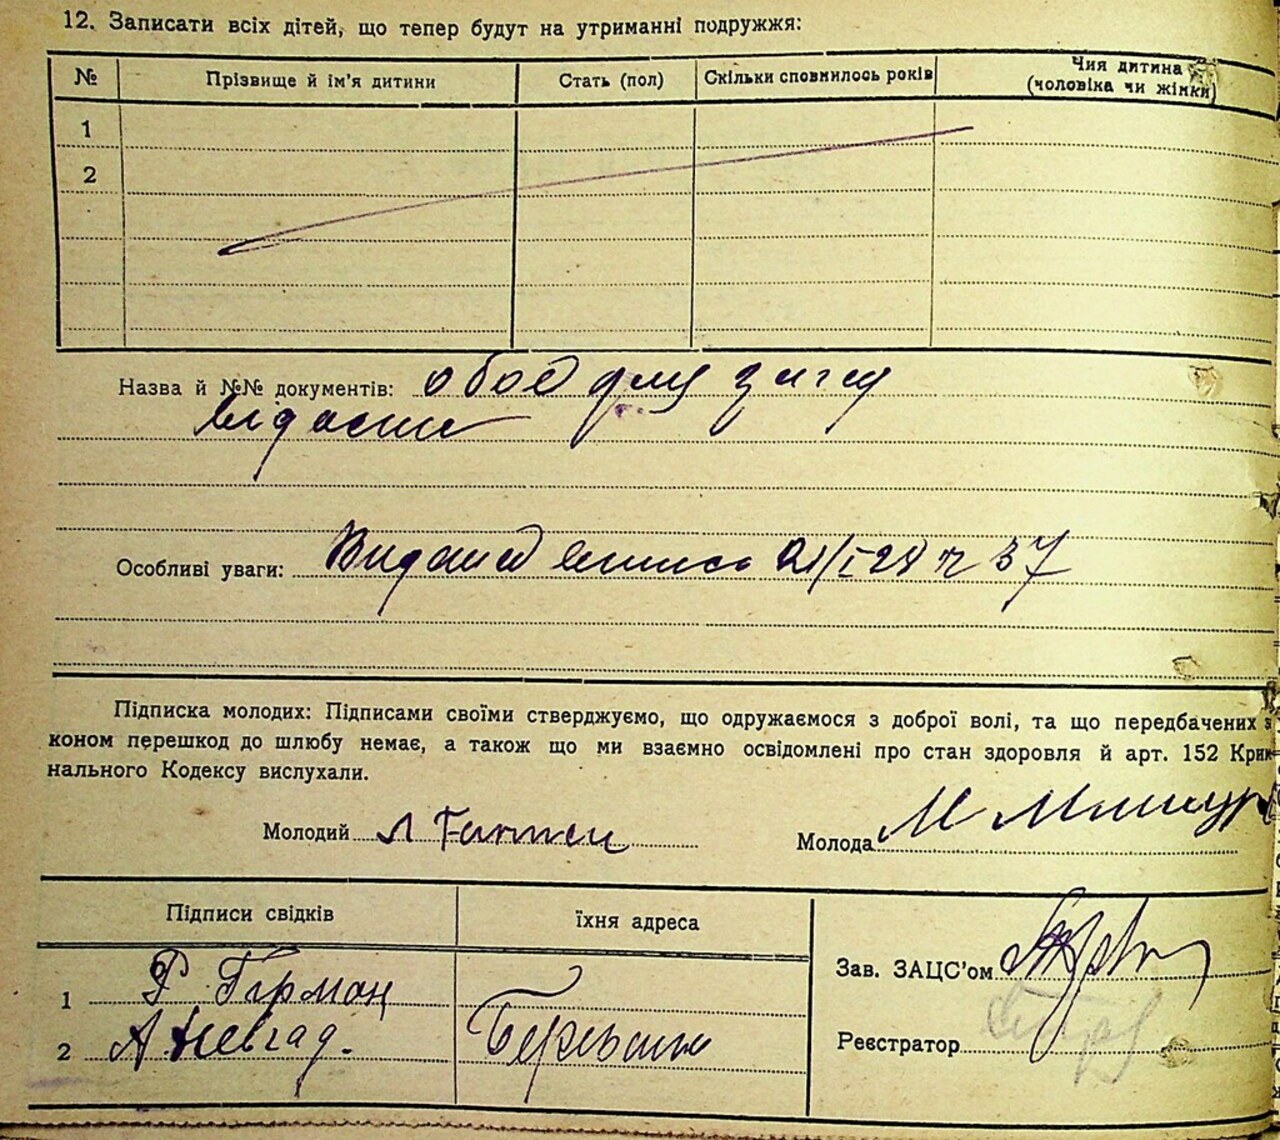 12. Записати всіх дітей, що тепер будут на утриманні подружжя:
№ Прізвище й ім'я дитини Стать (пол) Скільки сповнилось років Чия дитина (чоловіка чи жінки)
1
2
Назва й №№ документів:
Особливі уваги: 21/I-28 37
Підписка молодих: Підписами своїми стверджуємо, що одружаємося з доброї волі, та що передбачених з
коном перешкод до шлюбу немає, а також що ми взаємно освідомлені про стан здоровля й арт. 152 Крим
нального Кодексу вислухали.
Молодий Молода
Підписи свідків їхня адреса
Зав. ЗАЦС'ом
1 Р. Гірман
2
Реєстратор